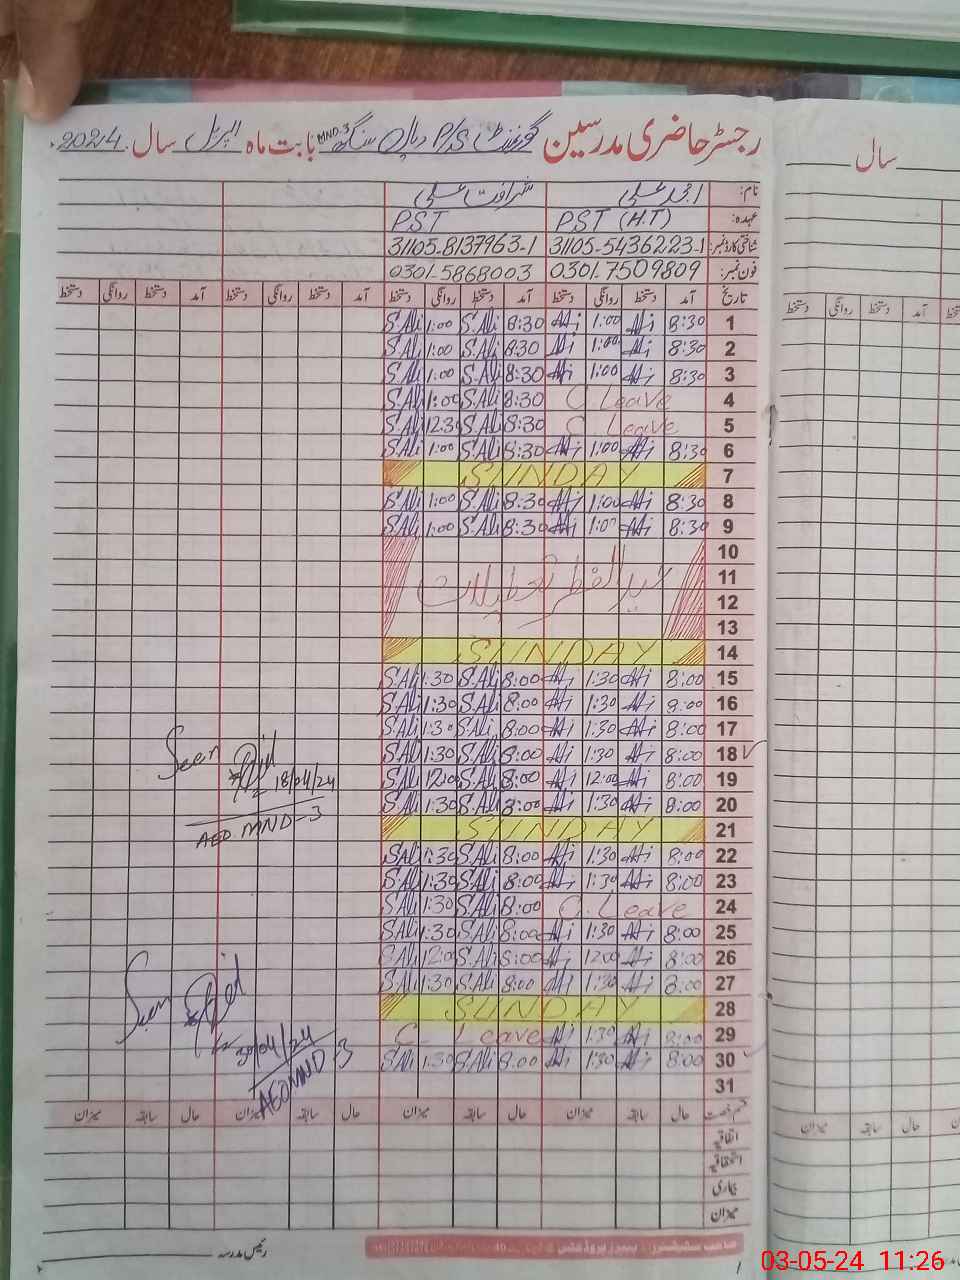 رجسٹر حاضری مدرسین گورنمنٹ P/S سنگھ MND-3 بابت ماہ اپریل سال 2024
سال
نام: امجد علی شرافت علی
عہدہ: PST (H.T) PST
شناختی کارڈ نمبر: 31105-5436223-1 31105-8137963-1
فون نمبر: 0301-7509809 0301-5868003
تاریخ آمد دستخط روانگی دستخط آمد دستخط روانگی دستخط آمد دستخط روانگی دستخط آمد دستخط روانگی دستخط
1 8:30 1:00 8:30 S.Ali 1:00 S.Ali
2 8:30 1:00 8:30 S.Ali 1:00 S.Ali
3 8:30 1:00 8:30 S.Ali 1:00 S.Ali
4 C. Leave 8:30 S.Ali 1:00 S.Ali
5 C. Leave 8:30 S.Ali 12:30 S.Ali
6 8:30 1:00 8:30 S.Ali 1:00 S.Ali
7 SUNDAY
8 8:30 1:00 8:30 S.Ali 1:00 S.Ali
9 8:30 1:00 8:30 S.Ali 1:00 S.Ali
10
11 عیدالفطر تعطیلات
12
13
14 SUNDAY
15 8:00 1:30 8:00 S.Ali 1:30 S.Ali
16 8:00 1:30 8:00 S.Ali 1:30 S.Ali
17 8:00 1:30 8:00 S.Ali 1:30 S.Ali
18 8:00 1:30 8:00 S.Ali 1:30 S.Ali
19 8:00 12:00 8:00 S.Ali 12:00 S.Ali
20 8:00 1:30 8:00 S.Ali 1:30 S.Ali
Seen
18/04/24
AEO.MND-3
21 SUNDAY
22 8:00 1:30 8:00 S.Ali 1:30 S.Ali
23 8:00 1:30 8:00 S.Ali 1:30 S.Ali
24 C. Leave 8:00 S.Ali 1:30 S.Ali
25 8:00 1:30 8:00 S.Ali 1:30 S.Ali
26 8:00 12:00 8:00 S.Ali 12:00 S.Ali
27 8:00 1:30 8:00 S.Ali 1:30 S.Ali
28 SUNDAY
29 8:00 1:30 C. Leave
30 8:00 1:30 8:00 S.Ali 1:30 S.Ali
31
Seen
30/04/24
AEO MND-3
قسم رخصت حال سابقہ میزان حال سابقہ میزان حال سابقہ میزان حال سابقہ میزان
اتفاقیہ
استحقاقیہ
بیماری
میزان
رئیس مدرسہ
دستخط روانگی دستخط آمد
میزان سابقہ حال
03-05-24 11:26